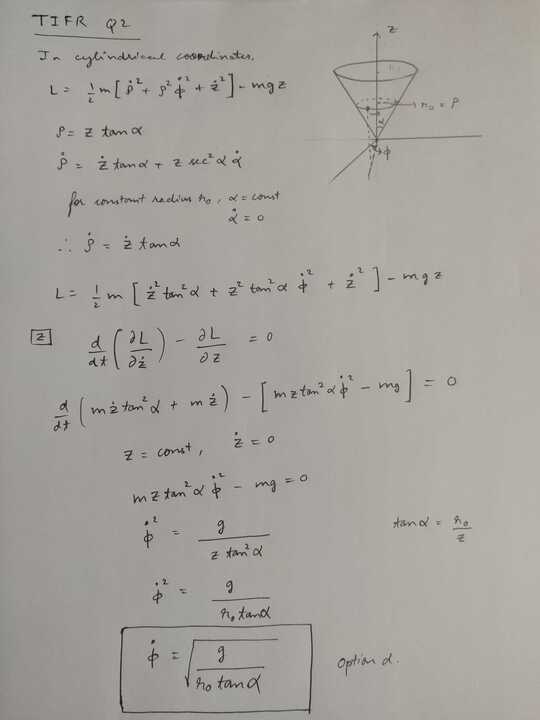 TIFR Q2
In cylindrical coordinates,
L = 1/2 m [ ρ̇² + ρ² φ̇² + ż² ] - mgz
z
r₀ = ρ
α
φ
ρ = z tanα
ρ̇ = ż tanα + z sec²α α̇
for constant radius r₀, α = const
α̇ = 0
∴ ρ̇ = ż tanα
L = 1/2 m [ ż² tan²α + z² tan²α φ̇² + ż² ] - mgz
z
d/dt ( ∂L/∂ż ) - ∂L/∂z = 0
d/dt ( m ż tan²α + m ż ) - [ m z tan²α φ̇² - mg ] = 0
z = const, ż = 0
m z tan²α φ̇² - mg = 0
φ̇² = g / z tan²α
tanα = r₀/z
φ̇² = g / r₀ tanα
φ̇ = √( g / r₀ tanα )
Option d.